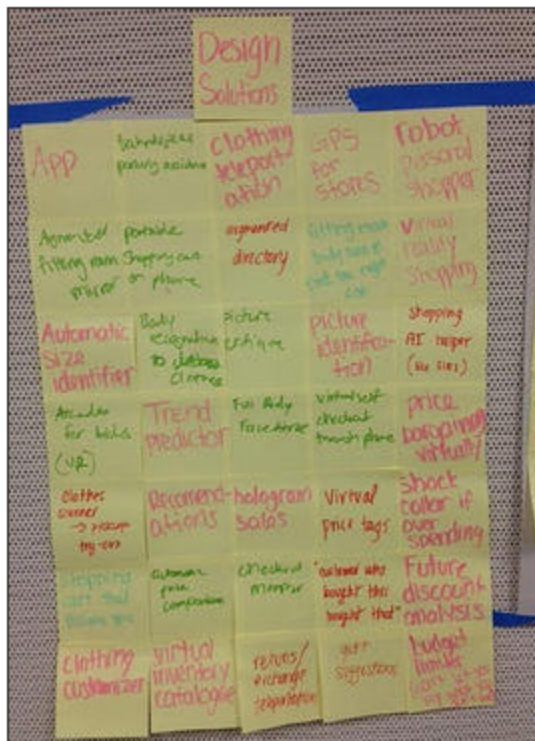 Design
Solutions
App
parking assistance
clothing
teleport-
ation
GPS
for
stores
robot
personal
shopper
Augmented
fitting room
mirror
portable
shopping cart
on phone
augmented
directory
fitting room
body scan to
find the right
size
Virtual
reality
shopping
Automatic
size
identifier
Body
recognition
to
clothes
picture
critique
picture
identifica-
tion
shopping
AI helper
(like Siri)
Arcades
for kids
(VR)
Trend
predictor
Full Body
virtual self
checkout
through phone
price
bargaining
virtually
clothes
scanner
→ pickup
try-ons
Recomend-
ations
hologram
sales
Virtual
price tags
shock
collar if
over
spending
shopping
cart that
follows you
automatic
price
comparison
checkout
mirror
"customers who
bought this
bought that"
Future
discount
analysis
clothing
customizer
virtual
inventory
catalogue
returns/
exchange
teleportation
gift
suggestions
budget
limits